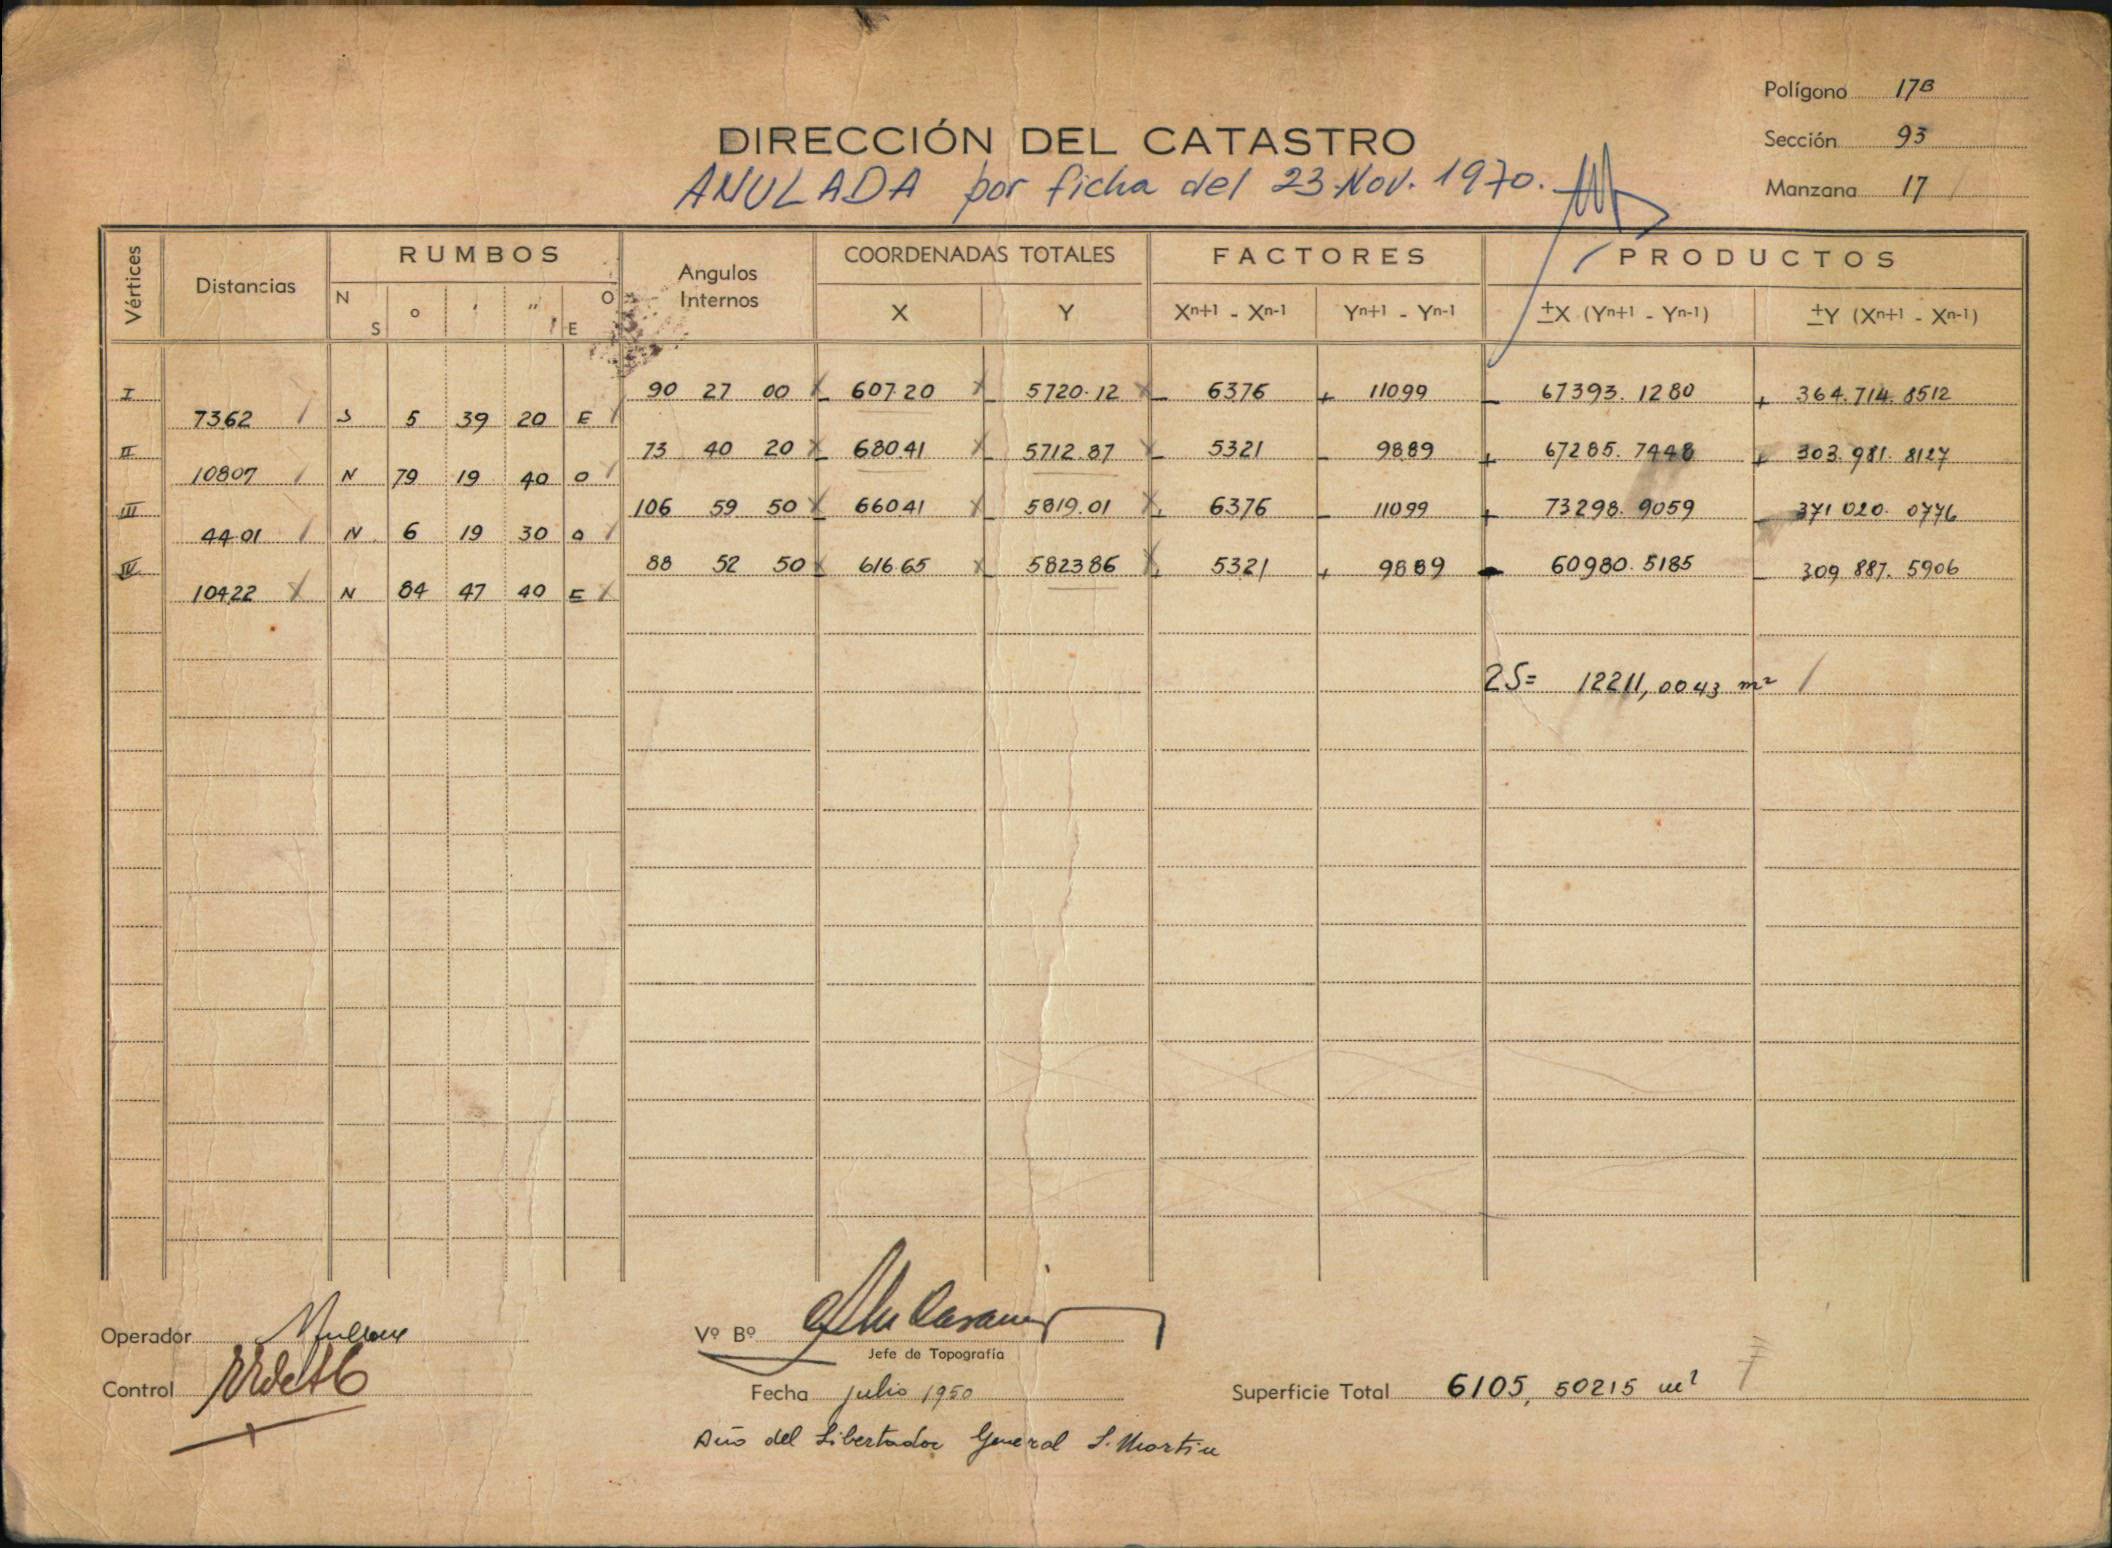 Polígono 17B
DIRECCIÓN DEL CATASTRO
Sección 93
ANULADA por ficha del 23.Nov. 1970.
Manzana 17
Vértices Distancias RUMBOS Angulos Internos COORDENADAS TOTALES FACTORES PRODUCTOS
N S ° ' " O E X Y Xn+1 - Xn-1 Yn+1 - Yn-1 ±X (Yn+1 - Yn-1) ±Y (Xn+1 - Xn-1)
I 90 27 00 - 607.20 - 5720.12 - 6376 + 11099 - 67393.1280 + 364.714.8512
7362 S 5 39 20 E
II 73 40 20 - 680.41 - 5712.87 - 5321 - 9889 + 67285.7448 + 303.981.8127
10807 N 79 19 40 O
III 106 59 50 - 660.41 - 5819.01 + 6376 - 11099 + 73298.9059 - 371 020.0776
44.01 N 6 19 30 O
IV 88 52 50 - 616.65 - 5823.86 + 5321 + 9889 - 60980.5185 - 309 887.5906
10422 N 84 47 40 E
2S= 12211,0043 m²
Operador
Vº Bº
Jefe de Topografía
Control
Fecha julio 1950
Superficie Total 6105, 50215 m²
Año del Libertador General S. Martin